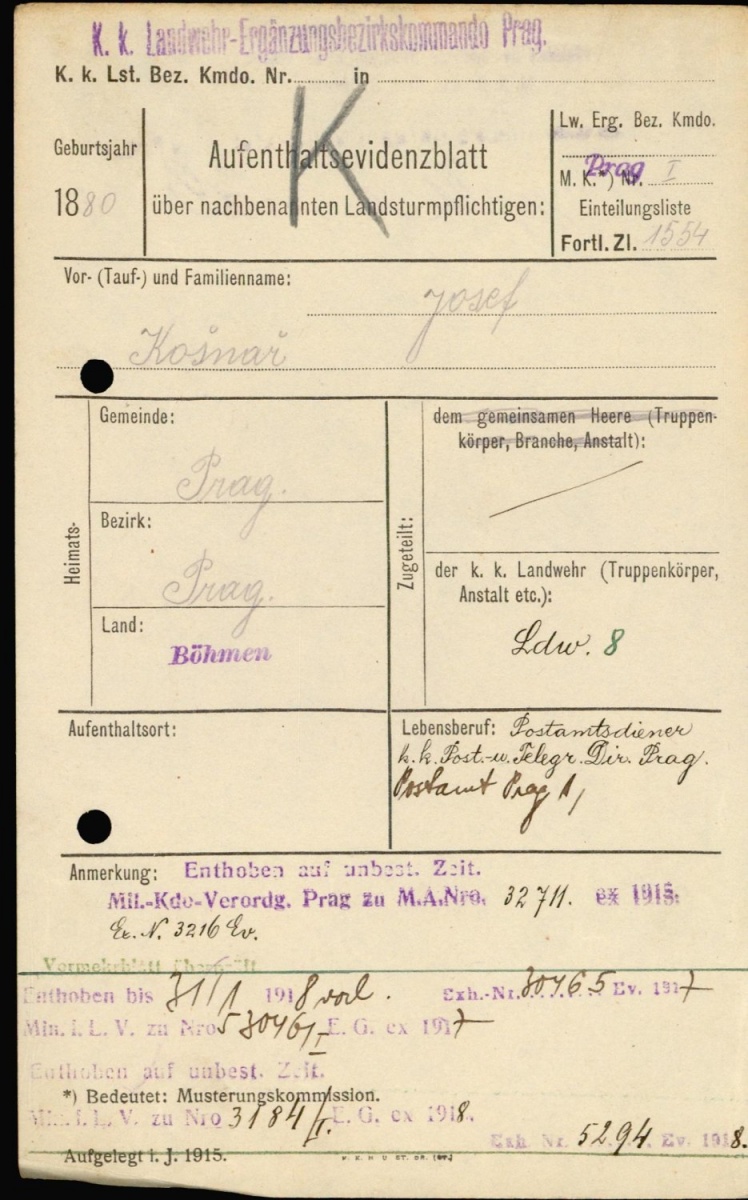 K. k. Landwehr-Ergänzungsbezirkskommando Prag.
K. k. Lst. Bez. Kmdo. Nr. in
K
Geburtsjahr
1880
Aufenthaltsevidenzblatt
über nachbenannten Landsturmpflichtigen:
Lw. Erg. Bez. Kmdo.
Prag
M. K.*) Nr. I
Einteilungsliste
Fortl. Zl. 1554
Vor- (Tauf-) und Familienname:
Josef
Košnař
Heimats-
Gemeinde:
Prag.
Bezirk:
Prag.
Land:
Böhmen
Zugeteilt:
dem gemeinsamen Heere (Truppen-
körper, Branche, Anstalt):
der k. k. Landwehr (Truppenkörper,
Anstalt etc.):
Ldw. 8
Aufenthaltsort:
Lebensberuf: Postamtsdiener
k. k. Post.-u. Telegr. Dir. Prag.
Postamt Prag 1
Anmerkung: Enthoben auf unbest. Zeit.
Mil.-Kdo-Verordg. Prag zu M.A.Nro. 32711. ex 1915.
Ex. N. 3216 Ev.
Vormerkblatt überprüft
Enthoben bis 31/1 1918 vorl. Exh.-Nr. 30465 Ev. 1917
Min. f. L. V. zu Nro 53046/I E. G. ex 1917
Enthoben auf unbest. Zeit.
*) Bedeutet: Musterungskommission.
Min. f. L. V. zu Nro 3184/I. E. G. ex 1918.
Exh. Nr. 5294 Ev. 1918.
Aufgelegt i. J. 1915.